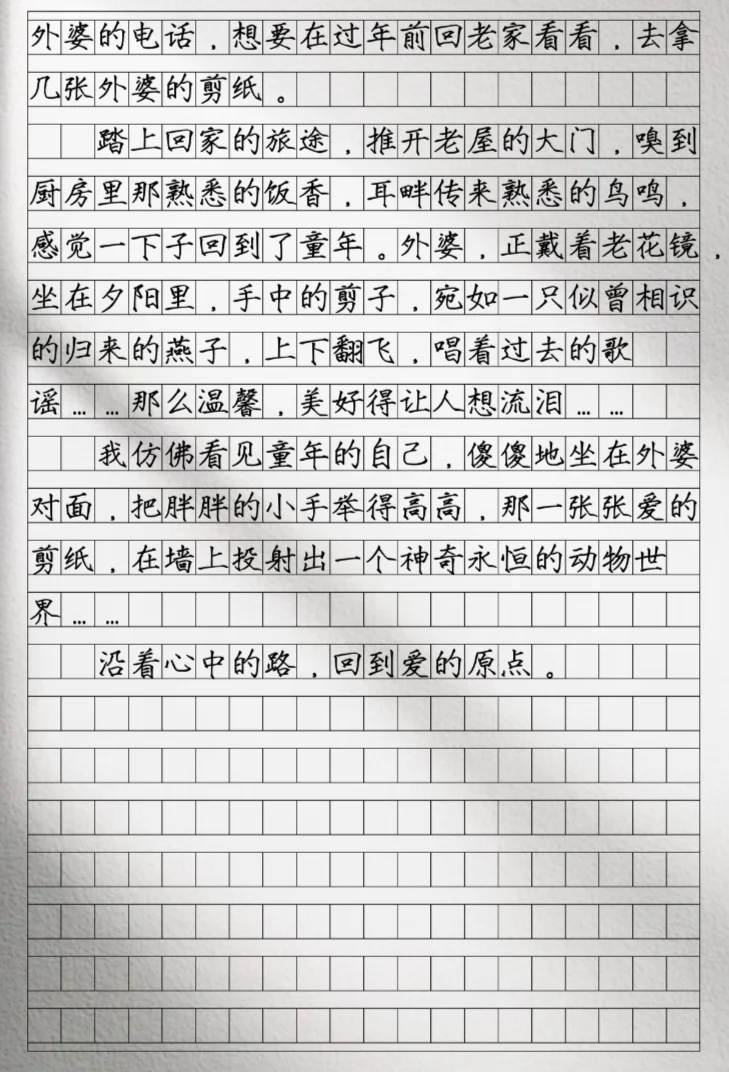 外婆的电话，想要在过年前回老家看看，去拿
几张外婆的剪纸。
踏上回家的旅途，推开老屋的大门，嗅到
厨房里那熟悉的饭香，耳畔传来熟悉的鸟鸣，
感觉一下子回到了童年。外婆，正戴着老花镜，
坐在夕阳里，手中的剪子，宛如一只似曾相识
的归来的燕子，上下翻飞，唱着过去的歌
谣……那么温馨，美好得让人想流泪……
我仿佛看见童年的自己，傻傻地坐在外婆
对面，把胖胖的小手举得高高，那一张张爱的
剪纸，在墙上投射出一个神奇永恒的动物世
界……
沿着心中的路，回到爱的原点。